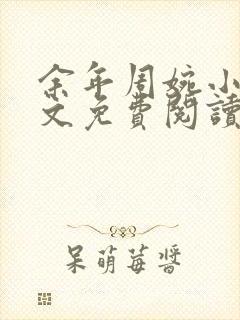 余年周婉小
文免費閱讀
呆萌莓醬